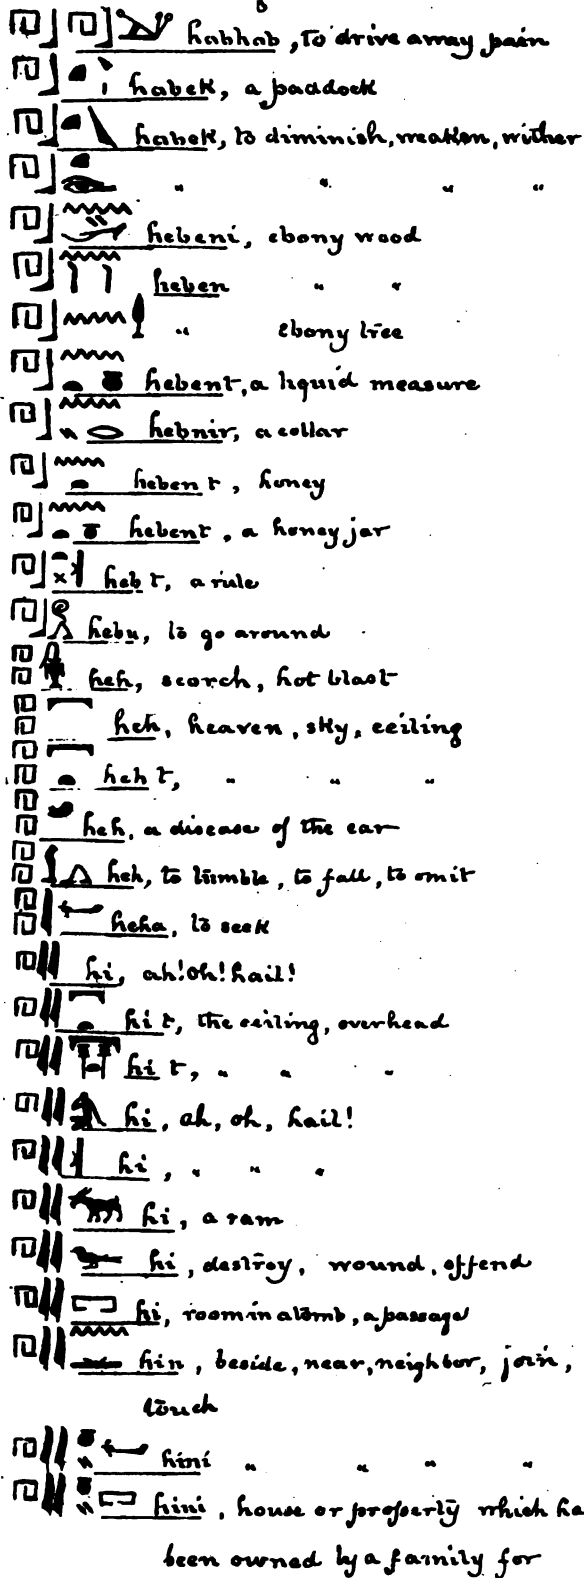 habhab, to drive away pain
habek, a paddock
habek, to diminish, weaken, wither
" " " "
hebeni, ebony wood
heben " "
" ebony tree
hebent, a liquid measure
hebnir, a collar
hebent, honey
hebent, a honey jar
hebt, a rule
hebu, to go around
heh, scorch, hot blast
heh, heaven, sky, ceiling
heht, " " "
heh, a disease of the ear
heh, to tumble, to fall, to omit
heha, to seek
hi, ah! oh! hail!
hit, the ceiling, overhead
hit, " " "
hi, ah, oh, hail!
hi, " " "
hi, a ram
hi, destroy, wound, offend
hi, room in a tomb, a passage
hin, beside, near, neighbor, join,
touch
hini " " " "
hini, house or property which ha
been owned by a family for